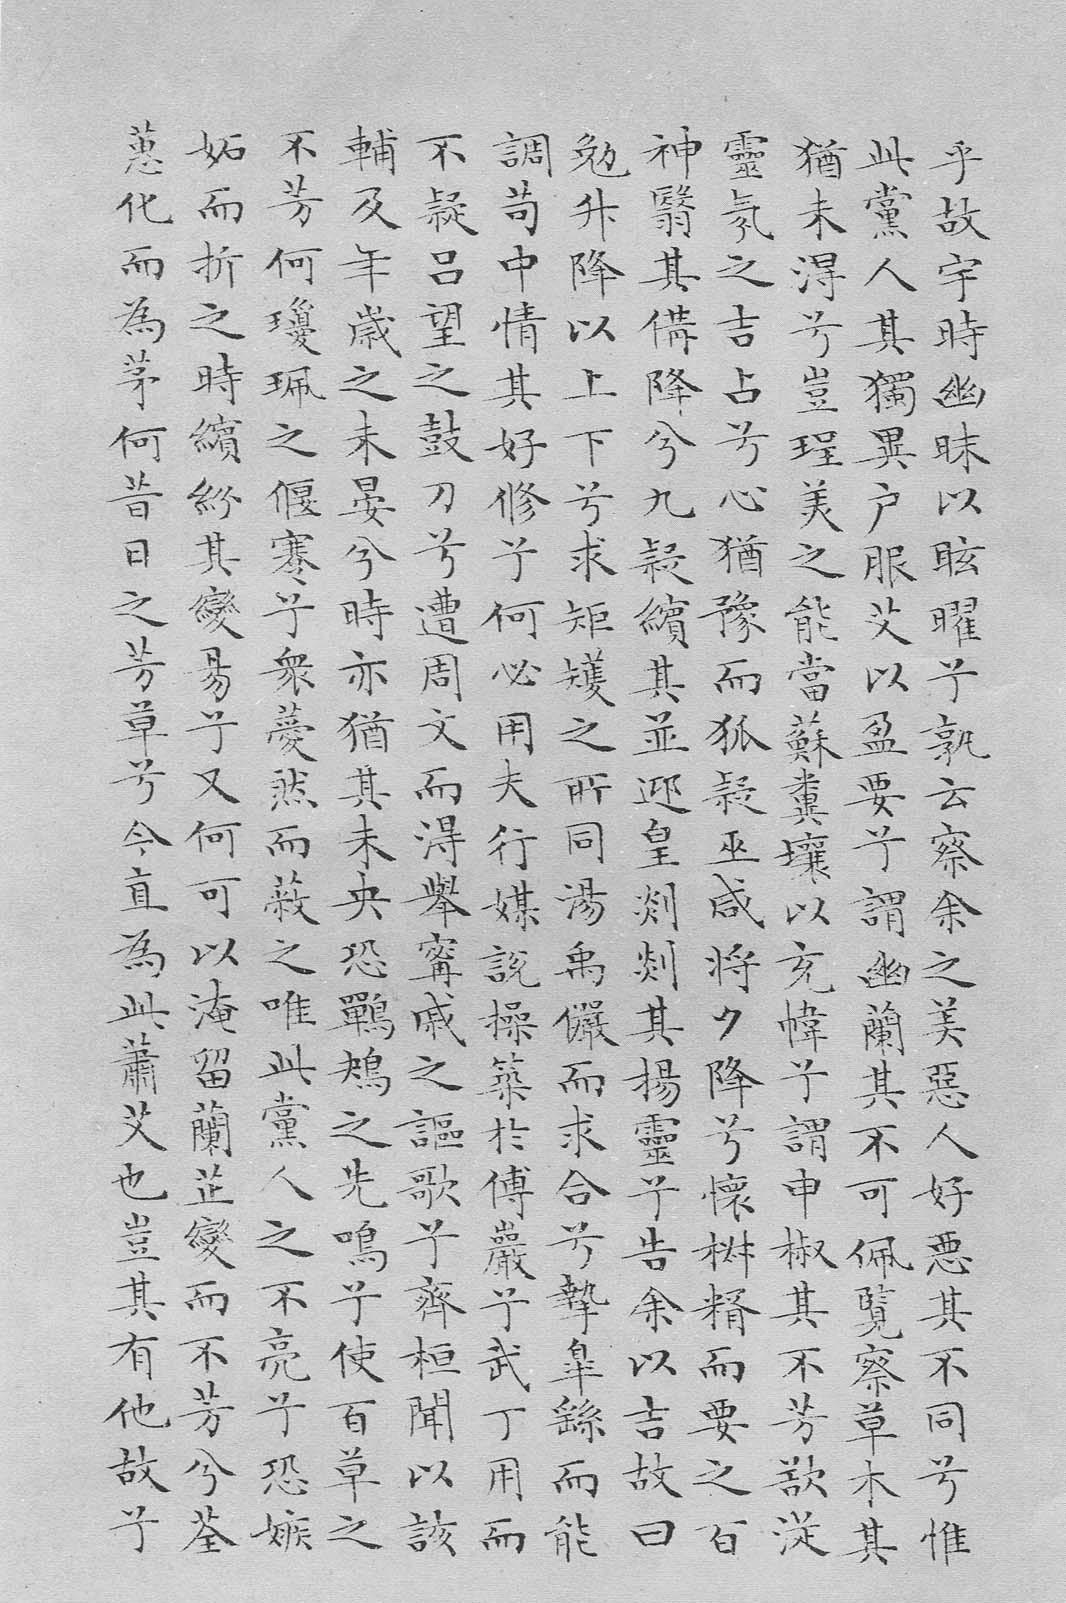 乎故宇時幽昧以眩曜兮孰云察余之美惡人好惡其不同兮惟
此黨人其獨異户服艾以盈要兮謂幽蘭其不可佩覽察草木其
猶未淂兮豈珵美之能當蘇糞壤以充幃兮謂申椒其不芳欲從
靈氛之吉占兮心猶豫而狐疑巫咸將夕降兮懷椒糈而要之百
神翳其備降兮九疑繽其並迎皇剡剡其揚靈兮告余以吉故曰
勉升降以上下兮求矩矱之所同湯禹儼而求合兮摯皐繇而能
調苟中情其好修兮何必用夫行媒說操築於傅巖兮武丁用而
不疑吕望之鼓刀兮遭周文而淂舉甯戚之謳歌兮齊桓聞以該
輔及年歲之未晏兮時亦猶其未央恐鷤鴂之先鳴兮使百草之
不芳何瓊珮之偃蹇兮衆薆然而蔽之唯此黨人之不亮兮恐嫉
妬而折之時繽紛其變易兮又何可以淹留蘭芷變而不芳兮荃
蕙化而為茅何昔日之芳草兮今直為此蕭艾也豈其有他故兮